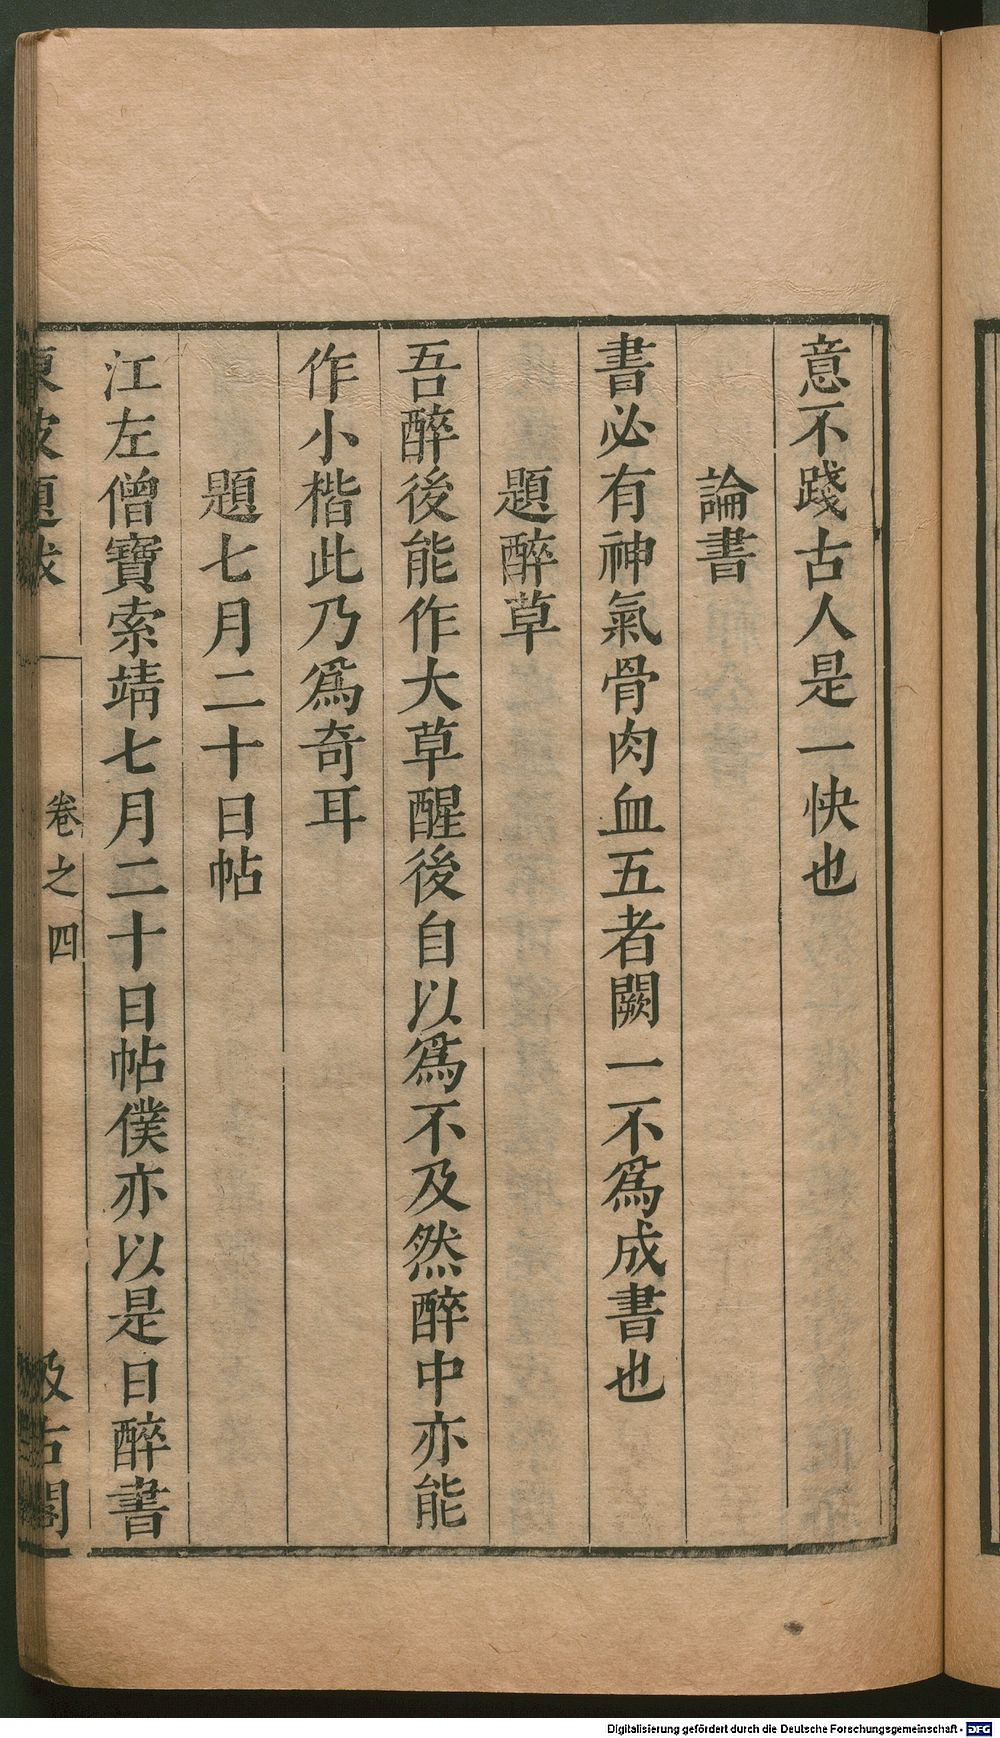 意不踐古人是一快也
論書
書必有神氣骨肉血五者闕一不為成書也
題醉草
吾醉後能作大草醒後自以為不及然醉中亦能
作小楷此乃為奇耳
題七月二十日帖
江左僧寶索靖七月二十日帖僕亦以是日醉書
東坡題跋 卷之四 汲古閣
Digitalisierung gefördert durch die Deutsche Forschungsgemeinschaft - DFG